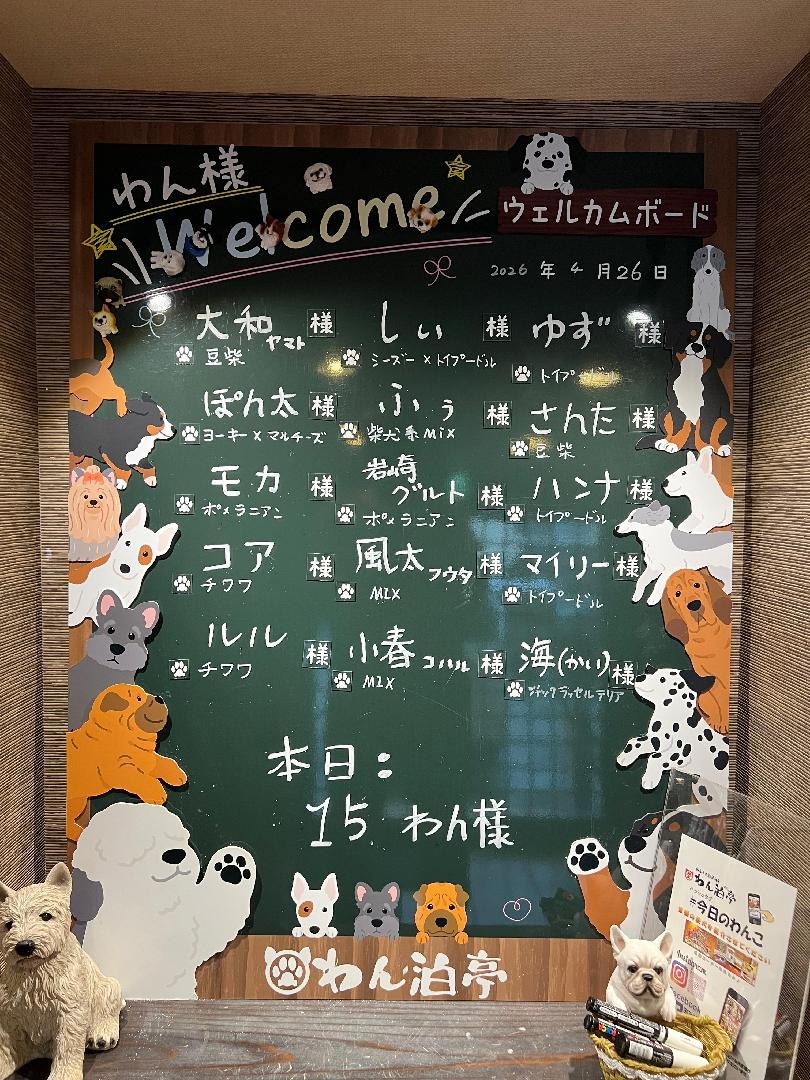 わん様
Welcome
ウェルカムボード
2026 年 4 月 26 日
大和 ヤマト 様
豆柴
しぃ 様
シーズー × トイプードル
ゆず 様
トイプードル
ぽん太 様
ヨーキー × マルチーズ
ふぅ 様
柴犬系 Mix
さんた 様
豆柴
モカ 様
ポメラニアン
岩崎
グルト 様
ポメラニアン
ハンナ 様
トイプードル
コア 様
チワワ
風太 フウタ 様
MIX
マイリー 様
トイプードル
ルル 様
チワワ
小春 コハル 様
MIX
海(かい) 様
ジャックラッセルテリア
本日:
15 わん様
わん泊亭
わん泊亭
#今日のわんこ
Instagram